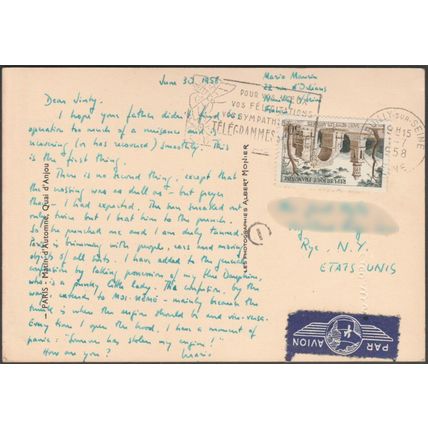 June 30, 1958.
Dear Jinty,
I hope your father didn't find his
operation too much of a nuisance and is
recovering (or has recovered) smoothly. This
is the first thing.
There is no second thing, except that
the crossing was as dull as - but
than - I had expected. The sun sneaked out
only twice but I beat him to the punch.
So he punched me and I am duly tanned.
is brimming with people, cars and moving
objects of all sorts. I have added to the general
confusion by taking possession of my blue Dauphine,
who is a pretty little lady. The confusion, by the
way, is extended to MOI-MÊME - mainly because the
trunk is where the engine should be and vice-versa.
Every time I open the hood, I have a moment of
panic: "Someone has stolen my engine!"
How are you?
Mario
Mario
22 rue d'Orléans
Neuilly s/Seine
POUR VOS
VOS FÉLICITATIONS
VOS SYMPATHIES
TÉLÉGRAMMES
NEUILLY-SUR-SEINE
19H15
1-7
1958
RÉPUBLIQUE FRANÇAISE
Rye, N.Y.
ETATS UNIS
PAR AVION
PARIS - Matin d'Automne, Quai d'Anjou
LES PHOTOGRAPHIES ALBERT MONIER